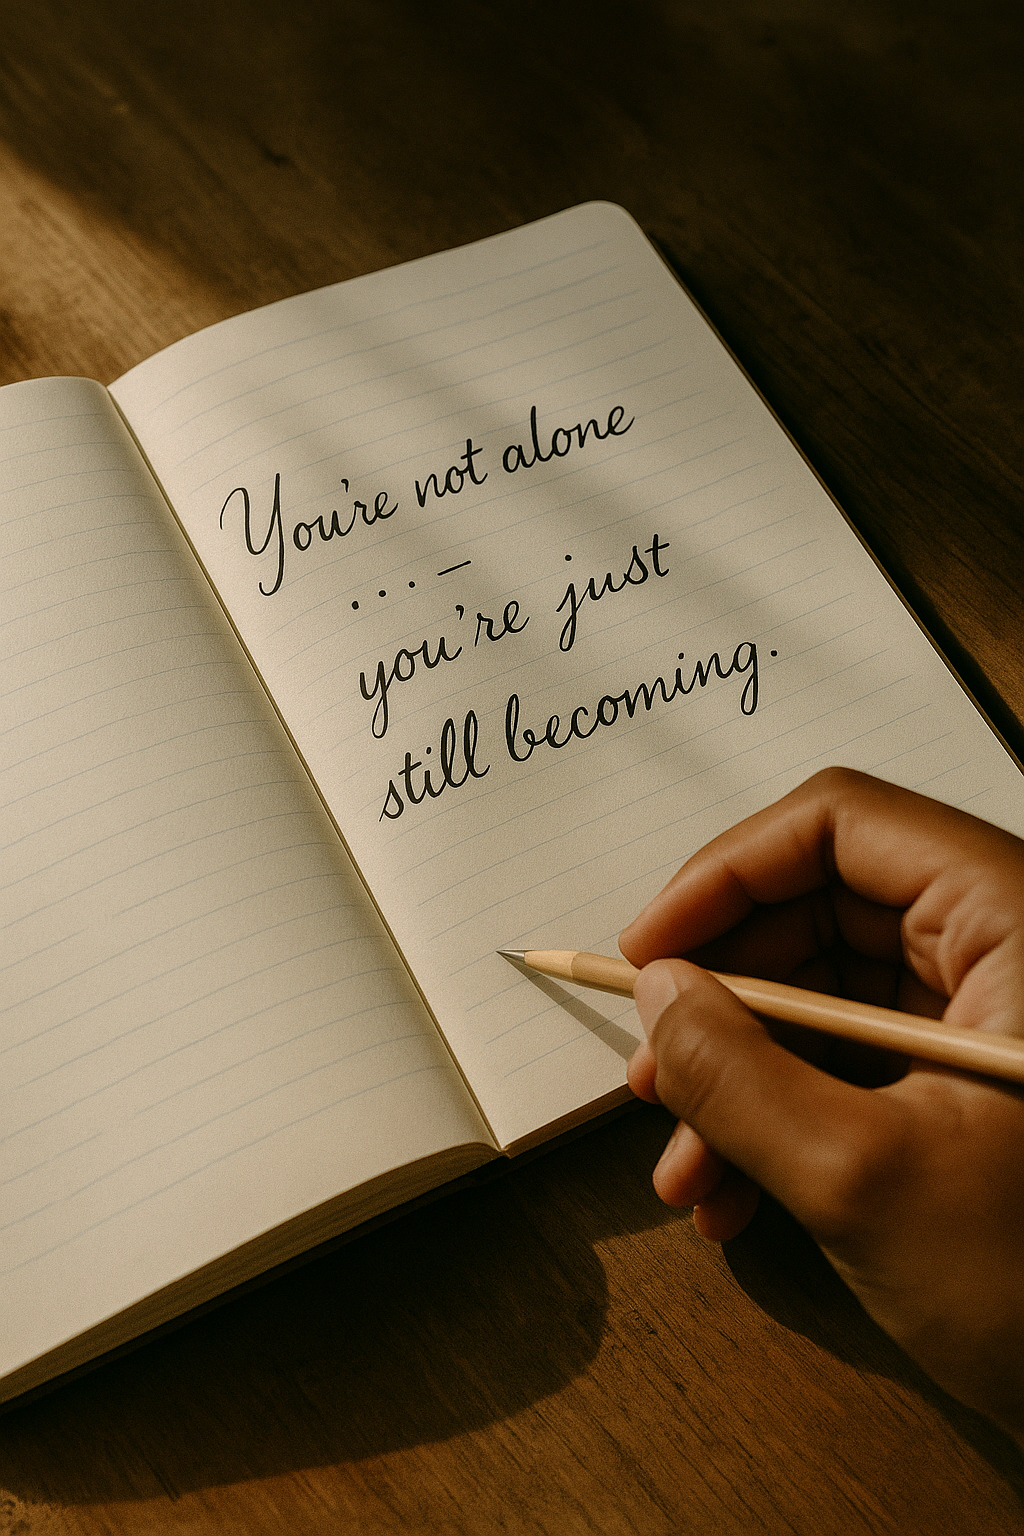 You're not alone
... –
you're just
still becoming.